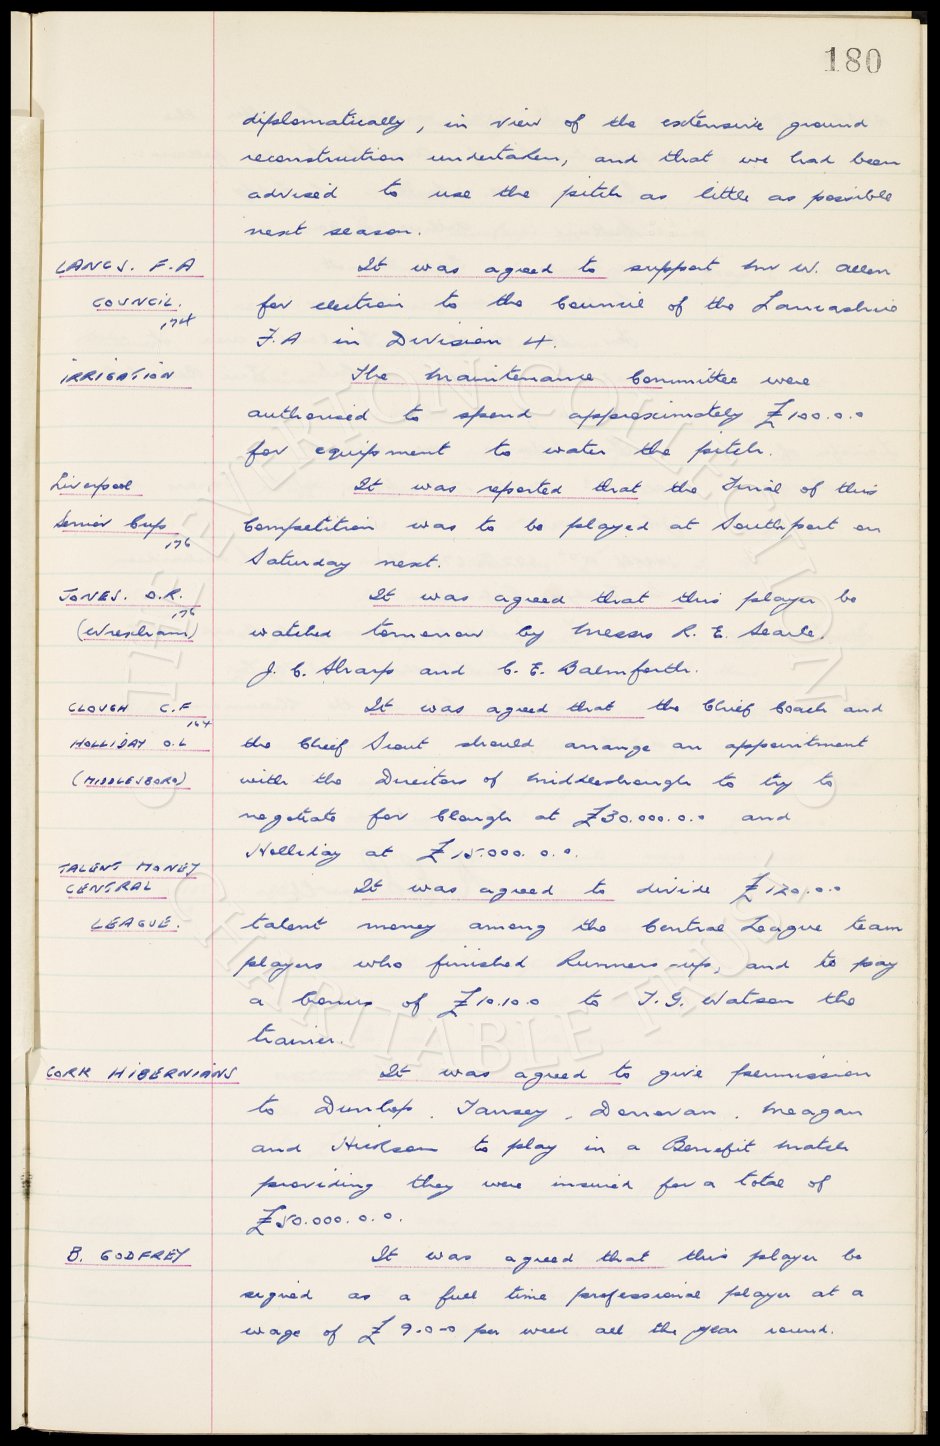 180
diplomatically, in view of the extensive ground
reconstruction undertaken, and that we had been
advised to use the pitch as little as possible
next season.
LANCS. F.A It was agreed to support Mr W. Allen
COUNCIL. for election to the Council of the Lancashire
174 F.A in Division 4.
IRRIGATION The Maintenance Committee were
authorised to spend approximately £100.0.0
for equipment to water the pitch.
Liverpool It was reported that the Final of this
Senior Cup Competition was to be played at Southport on
176 Saturday next.
JONES. D.R. It was agreed that this player be
176
(Wrexham) watched tomorrow by Messrs R. E. Searle.
J. C. Sharp and C. E. Balmforth.
CLOUGH C.F It was agreed that the Chief Coach and
164
HOLLIDAY O.L the Chief Scout should arrange an appointment
(MIDDLESBORO) with the Directors of Middlesbrough to try to
negotiate for Clough at £30.000.0.0 and
Holliday at £15.000.0.0.
TALENT MONEY
CENTRAL It was agreed to divide £120.0.0
LEAGUE. talent money among the Central League team
players who finished Runners-up, and to pay
a bonus of £10.10.0 to T.G. Watson the
trainer.
CORK HIBERNIANS It was agreed to give permission
to Dunlop. Tansey. Donovan. Meagan
and Hickson to play in a Benefit Match
providing they were insured for a total of
£50.000.0.0.
B. GODFREY It was agreed that this player be
signed as a full time professional player at a
wage of £9.0-0 per week all the year round.
THE EVERTON COLLECTION
CHARITABLE TRUST